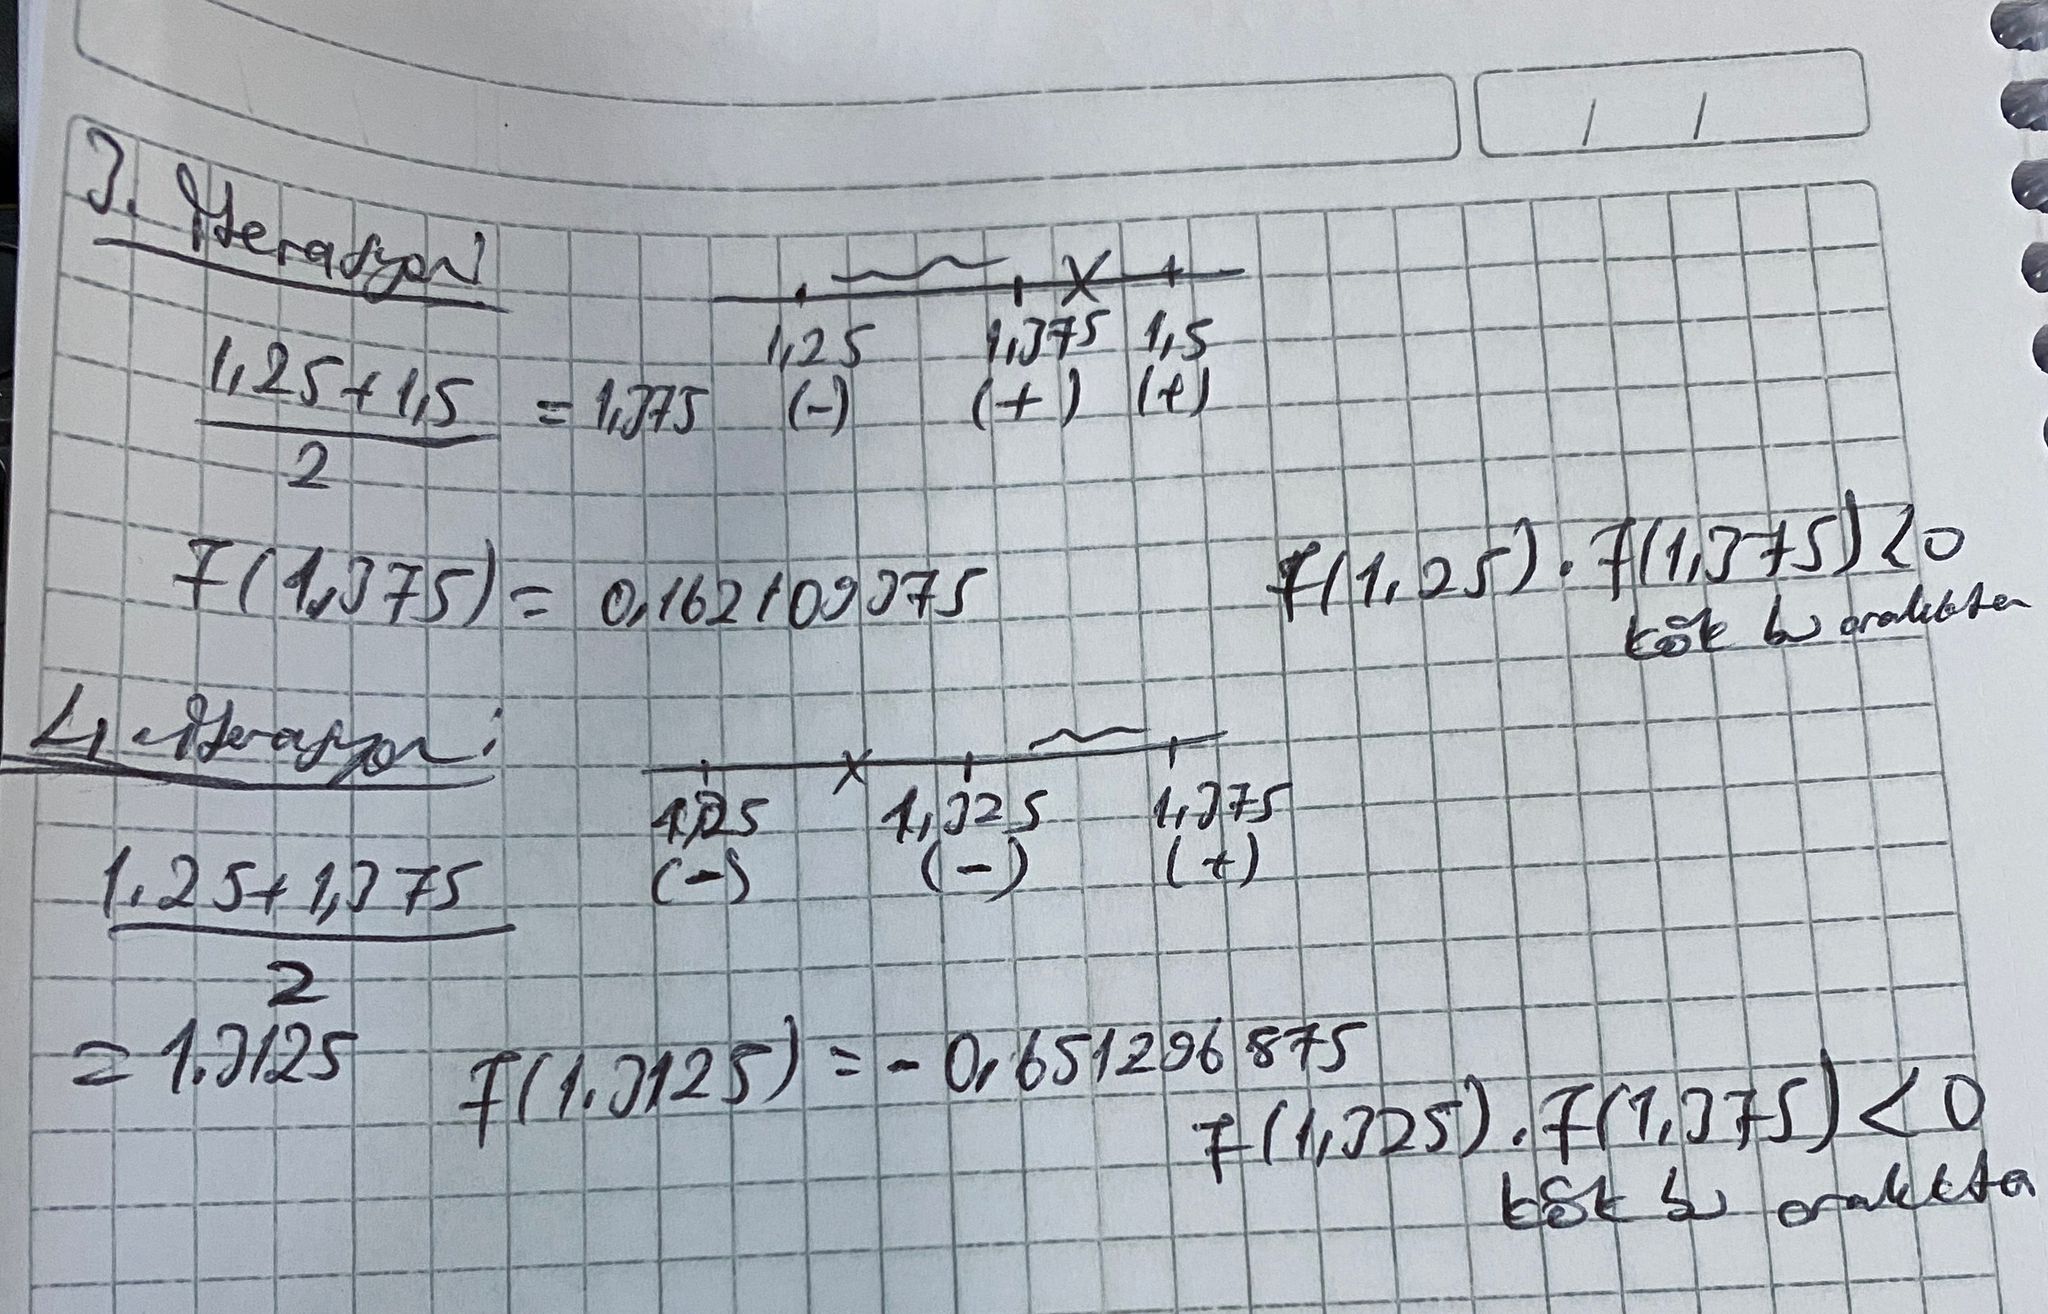 / /
3. İterasyon
1,25 1,375 1,5
(-) (+) (+)
1,25+1,5 = 1,375
2
f(1,375) = 0,162109375
f(1,25) . f(1,375) < 0
kök bu aralıkta
4. iterasyon:
1,25 1,325 1,375
(-) (-) (+)
1.25+1,375
2
= 1.3125
f(1.3125) = -0,651296875
f(1,325) . f(1,375) < 0
kök bu aralıkta